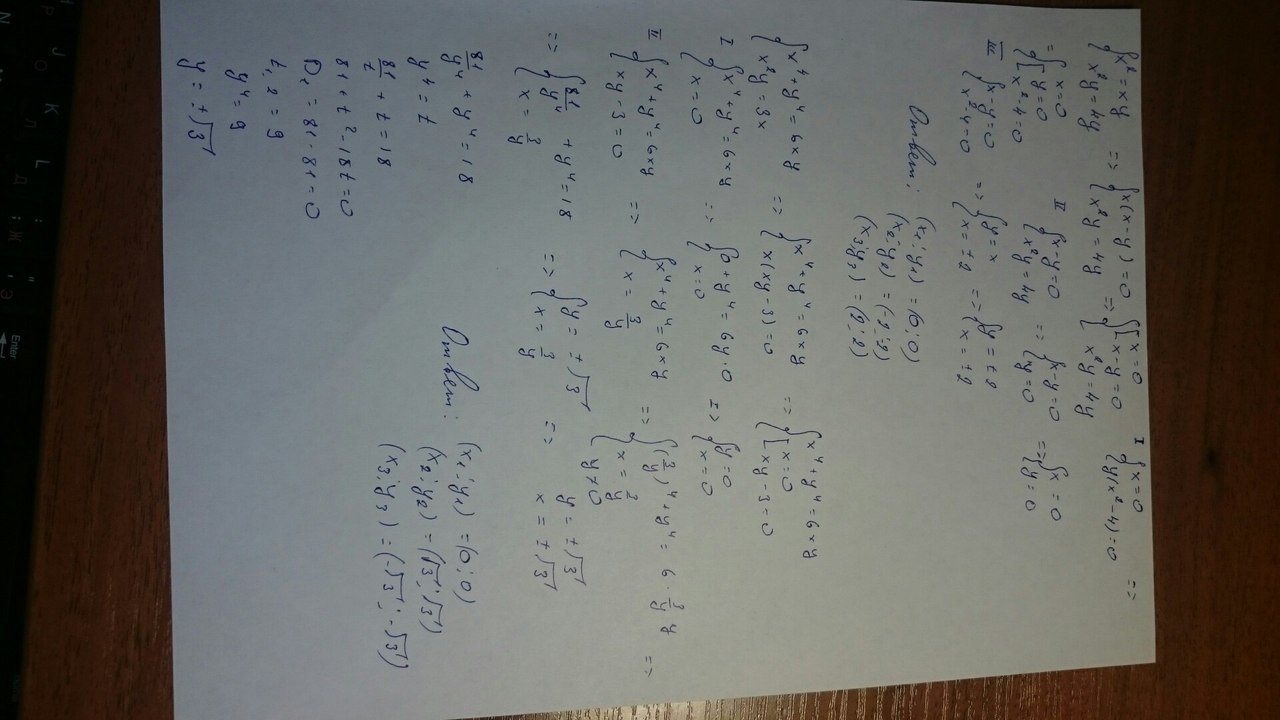 {x² = xy
x²y = 4y => {x(x-y) = 0
x²y = 4y => {[x = 0
x-y = 0
x²y = 4y I {x = 0
y(x²-4) = 0 =>
= {x = 0
[y = 0
x²-4 = 0 II {x-y = 0
x²y = 4y => {x-y = 0
y = 0 => {x = 0
y = 0
III {x-y = 0
x²-4 = 0 => {y = x
x = ±2 => {y = ±2
x = ±2
Ответ: (x₁; y₁) = (0; 0)
(x₂; y₂) = (-2; -2)
(x₃; y₃) = (2; 2)
{x⁴ + y⁴ = 6xy
x²y = 3x => {x⁴ + y⁴ = 6xy
x(xy - 3) = 0 => {x⁴ + y⁴ = 6xy
[x = 0
xy - 3 = 0
I {x⁴ + y⁴ = 6xy
x = 0 => {0 + y⁴ = 6y · 0
x = 0 => {y = 0
x = 0
II {x⁴ + y⁴ = 6xy
xy - 3 = 0 => {x⁴ + y⁴ = 6xy
x = 3/y => {(3/y)⁴ + y⁴ = 6 · 3/y y
x = 3/y
y ≠ 0 =>
=> {81/y⁴ + y⁴ = 18
x = 3/y => {y = ±√3
x = 3/y => y = ±√3
x = ±√3
81/y⁴ + y⁴ = 18
y⁴ = t
81/t + t = 18
81 + t² - 18t = 0
D₁ = 81 - 81 = 0
t₁,₂ = 9
y⁴ = 9
y = ±√3
Ответ: (x₁; y₁) = (0; 0)
(x₂; y₂) = (√3; √3)
(x₃; y₃) = (-√3; -√3)
J
K
L
Л
Д
Ж
Э
Enter
N